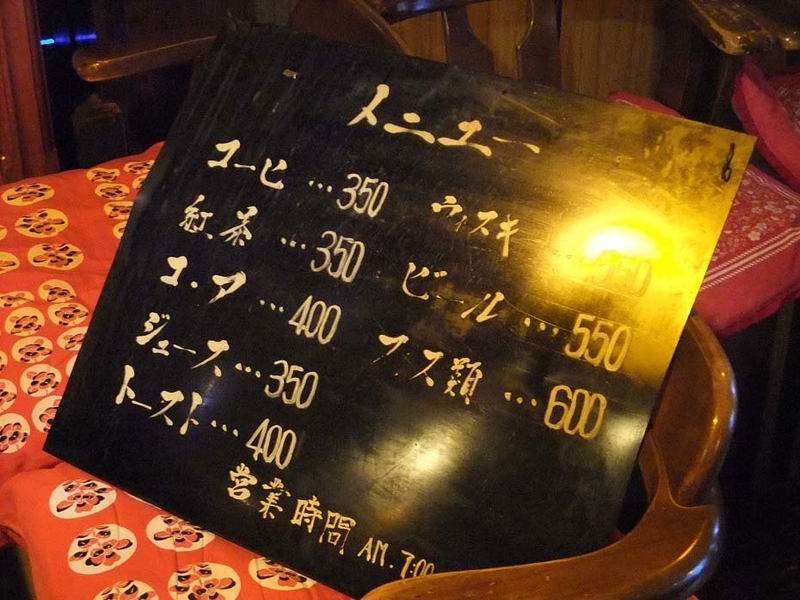 メニュー
コーヒ…350
紅茶…350
コ・ア…400
ジュース…350
トースト…400
ウィスキー…
ビール…550
フス類…600
営業時間 AM.7:00
8